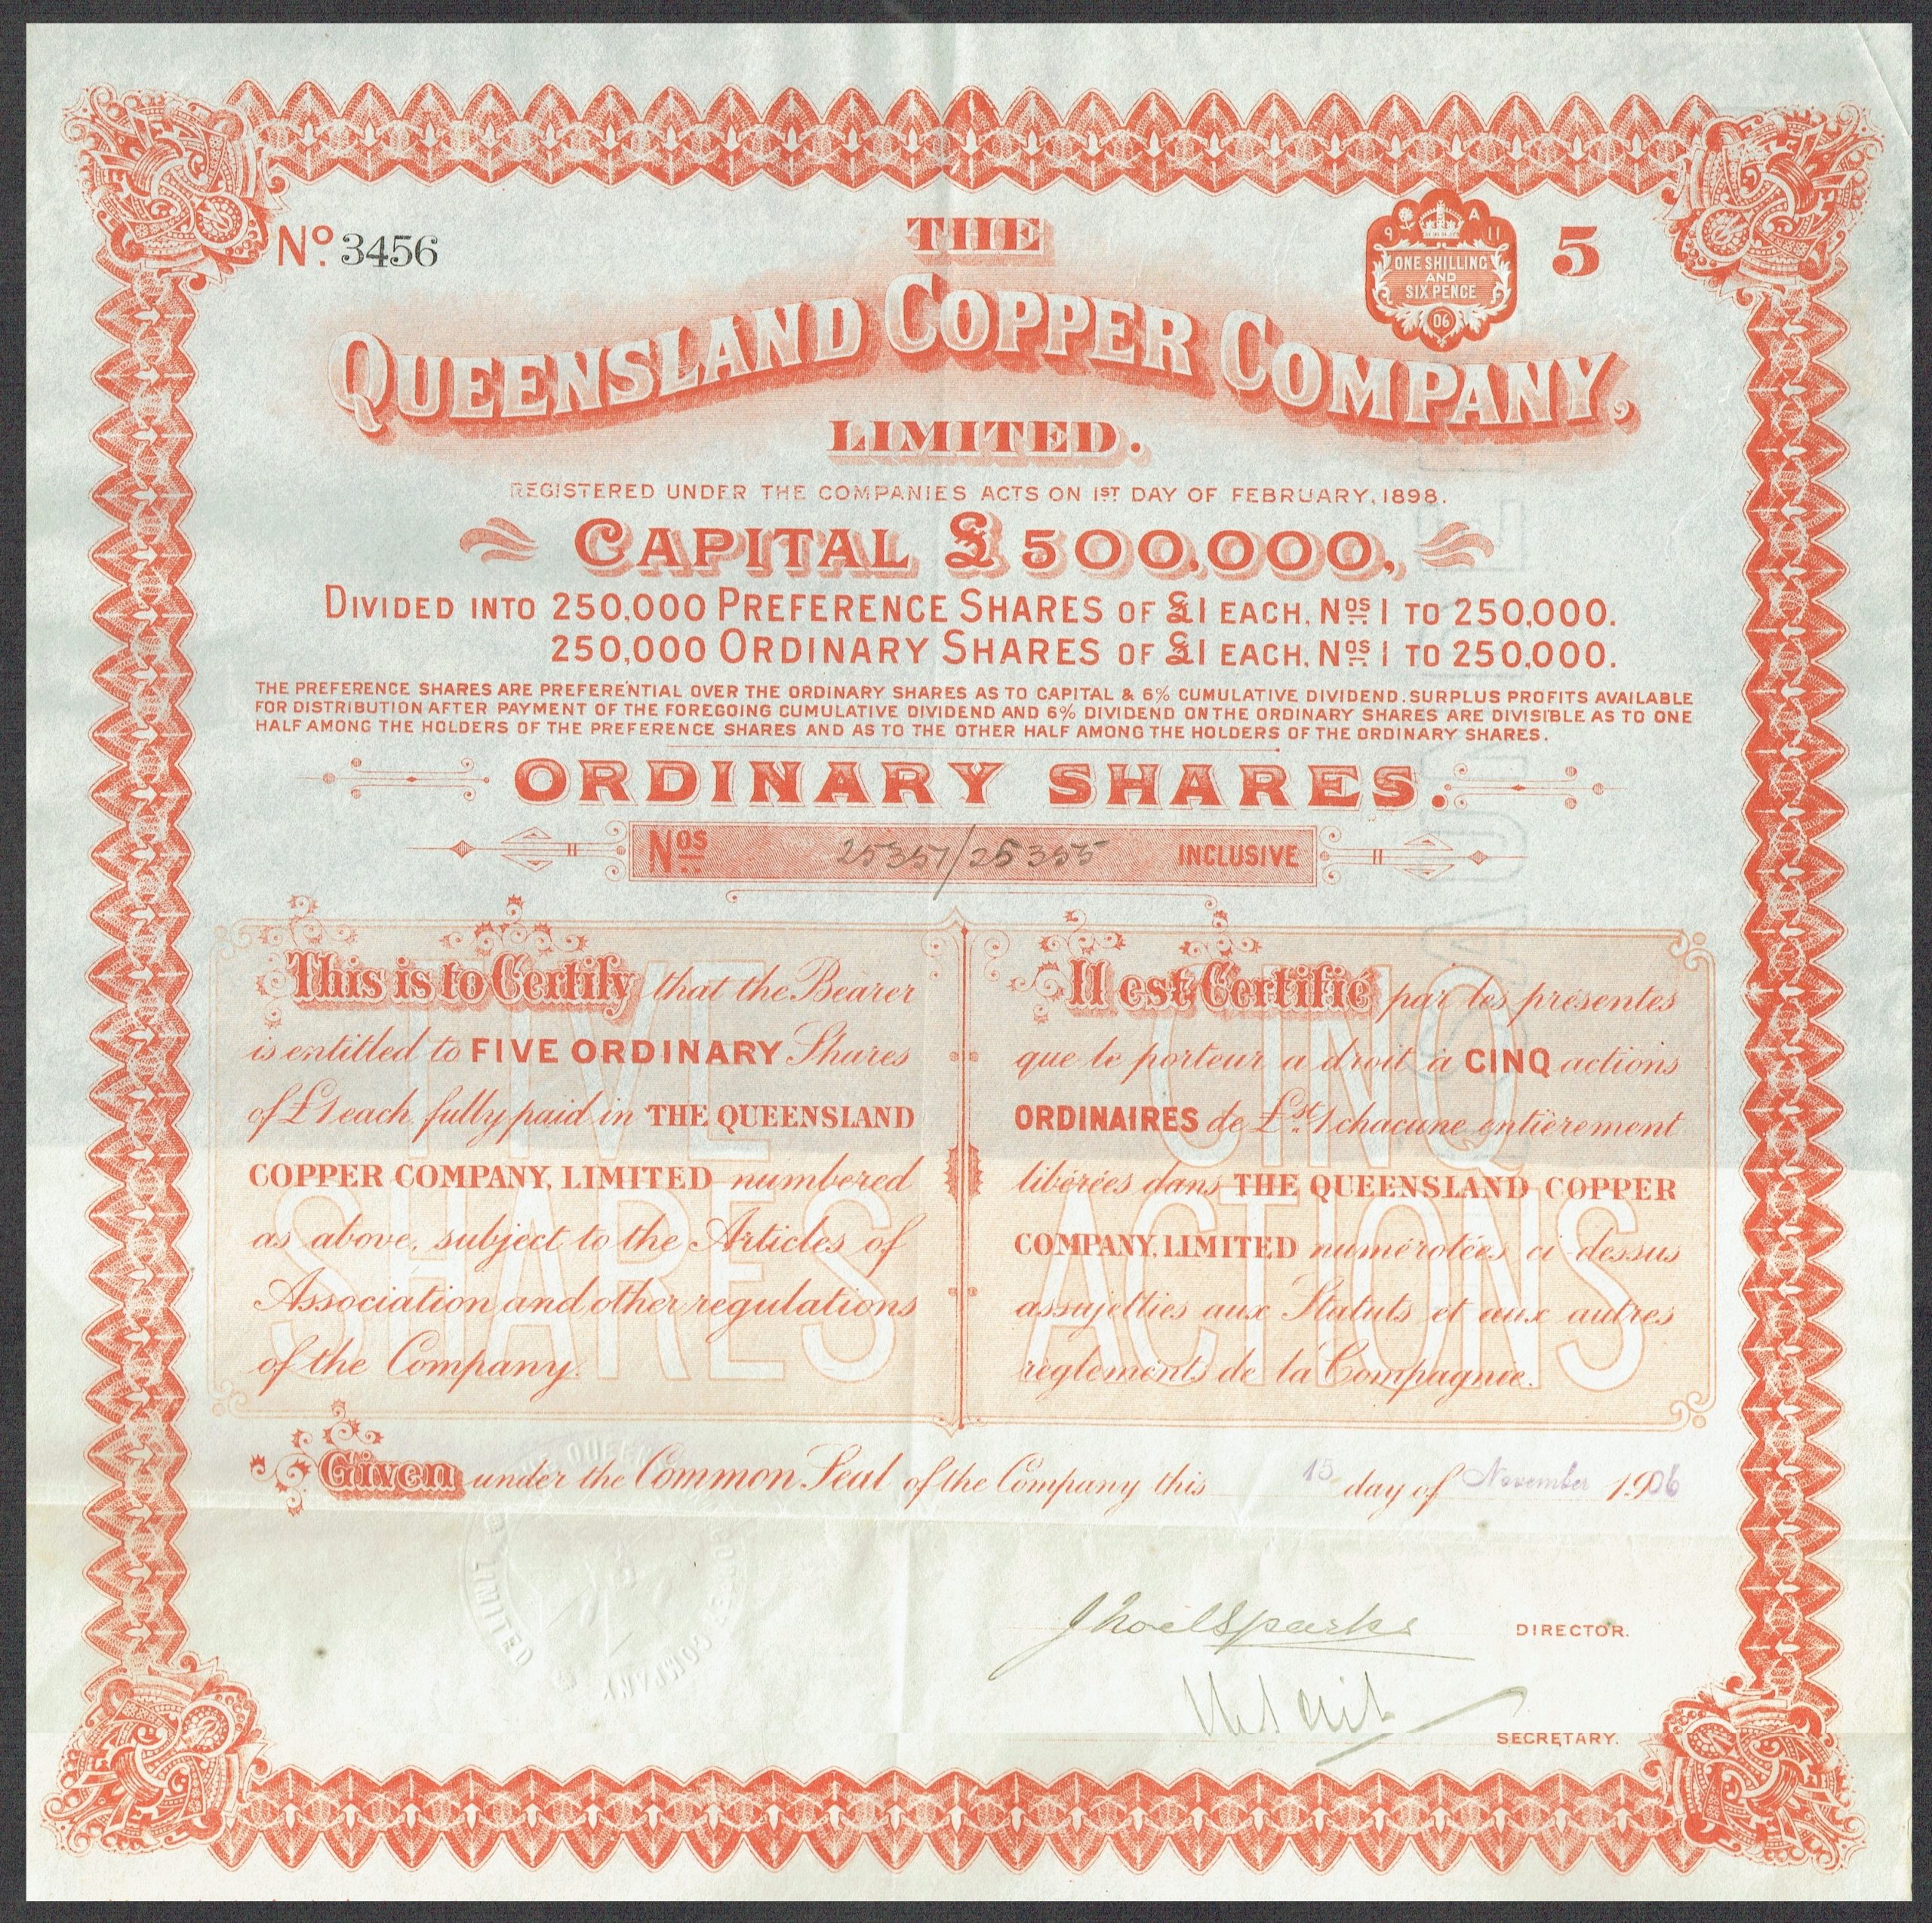 No. 3456
THE
9 A 11
ONE SHILLING
AND
SIX PENCE
06
5
QUEENSLAND COPPER COMPANY,
LIMITED.
REGISTERED UNDER THE COMPANIES ACTS ON 1ST DAY OF FEBRUARY, 1898.
CAPITAL £500,000,
DIVIDED INTO 250,000 PREFERENCE SHARES OF £1 EACH, NOS 1 TO 250,000.
250,000 ORDINARY SHARES OF £1 EACH, NOS 1 TO 250,000.
THE PREFERENCE SHARES ARE PREFERENTIAL OVER THE ORDINARY SHARES AS TO CAPITAL & 6% CUMULATIVE DIVIDEND. SURPLUS PROFITS AVAILABLE
FOR DISTRIBUTION AFTER PAYMENT OF THE FOREGOING CUMULATIVE DIVIDEND AND 6% DIVIDEND ON THE ORDINARY SHARES ARE DIVISIBLE AS TO ONE
HALF AMONG THE HOLDERS OF THE PREFERENCE SHARES AND AS TO THE OTHER HALF AMONG THE HOLDERS OF THE ORDINARY SHARES.
ORDINARY SHARES.
NOS 25351/25355 INCLUSIVE
FIVE
SHARES
This is to Certify that the Bearer
is entitled to FIVE ORDINARY Shares
of £1 each, fully paid in THE QUEENSLAND
COPPER COMPANY, LIMITED numbered
as above, subject to the Articles of
Association and other regulations
of the Company.
CINQ
ACTIONS
Il est Certifié par les présentes
que le porteur a droit à CINQ actions
ORDINAIRES de £st. 1 chacune entièrement
libérées dans THE QUEENSLAND COPPER
COMPANY, LIMITED numérotées ci dessus
assujetties aux Statuts et aux autres
règlements de la Compagnie.
Given under the Common Seal of the Company this 15 day of November 1906
THE QUEENSLAND COPPER COMPANY LIMITED
J Noel Sparks DIRECTOR.
SECRETARY.